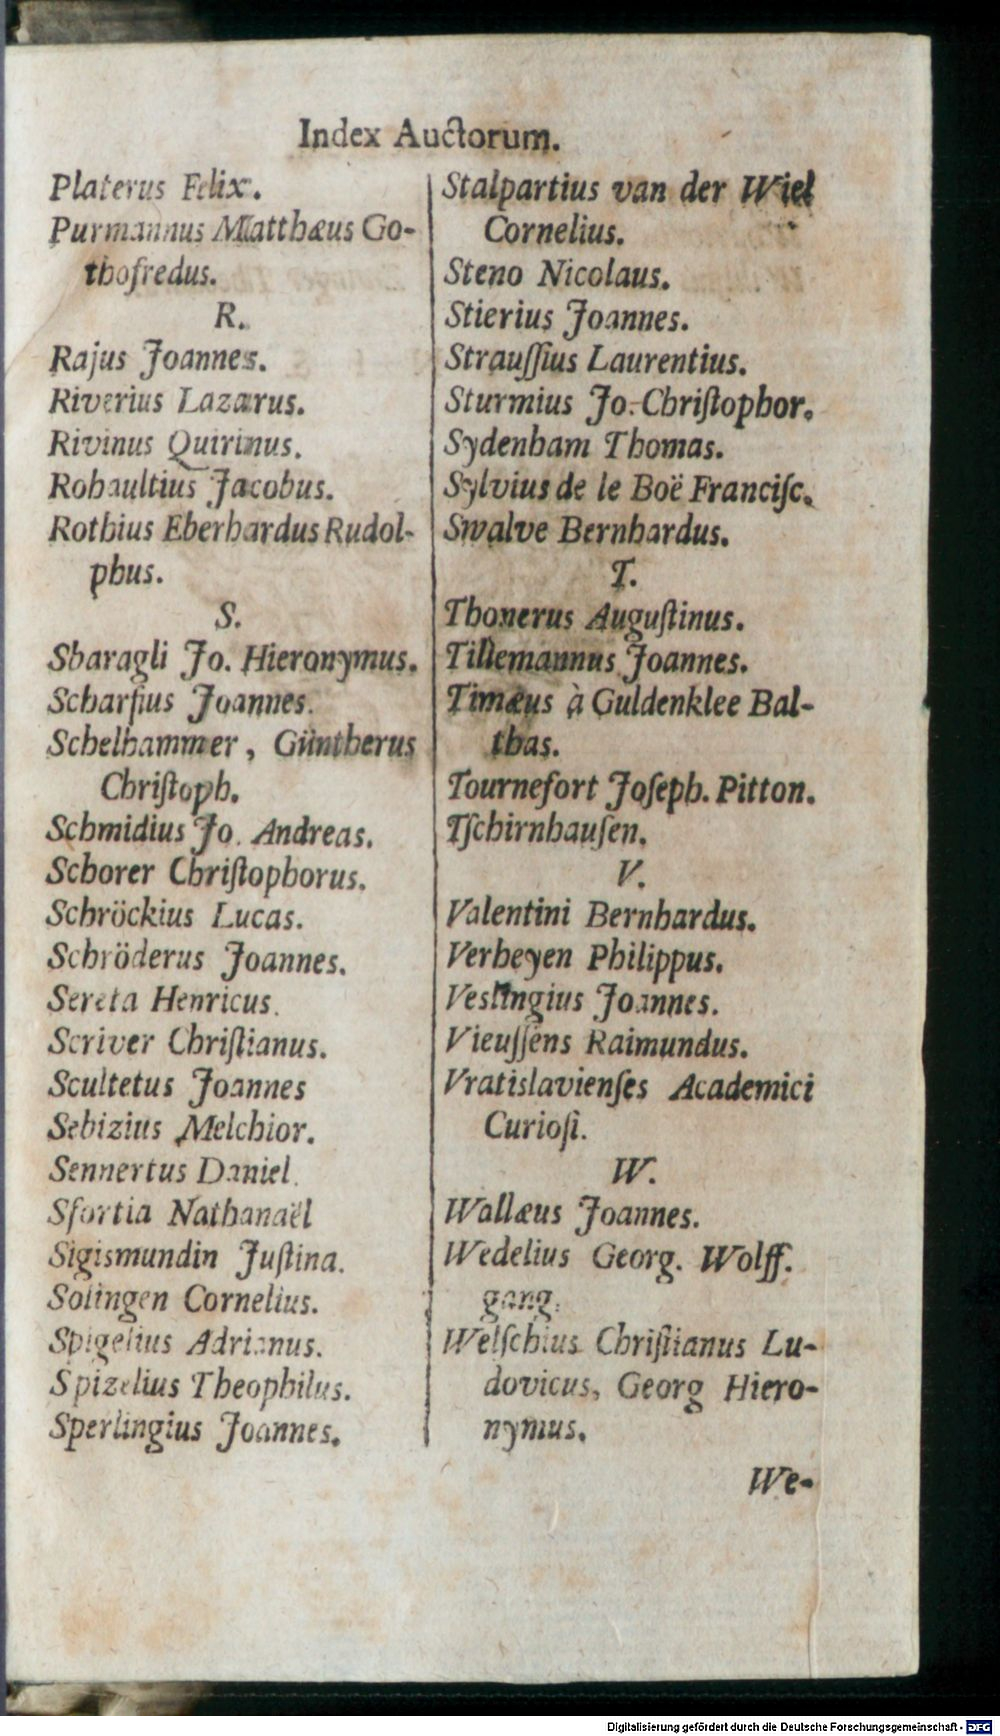 Index Auctorum.
Platerus Felix.
Purmannus Matthæus Go-
thofredus.
R.
Rajus Joannes.
Riverius Lazarus.
Rivinus Quirinus.
Rohaultius Jacobus.
Rothius Eberhardus Rudol-
phus.
S.
Sbaragli Jo. Hieronymus.
Scharfius Joannes.
Schelhammer, Güntherus
Chriſtoph.
Schmidius Jo. Andreas.
Schorer Chriſtophorus.
Schröckius Lucas.
Schröderus Joannes.
Sereta Henricus.
Scriver Chriſtianus.
Scultetus Joannes
Sebizius Melchior.
Sennertus Daniel.
Sfortia Nathanaël
Sigismundin Juſtina.
Solingen Cornelius.
Spigelius Adrianus.
Spizelius Theophilus.
Sperlingius Joannes.
Stalpartius van der Wiel
Cornelius.
Steno Nicolaus.
Stierius Joannes.
Strauſſius Laurentius.
Sturmius Jo. Chriſtophor.
Sydenham Thomas.
Sylvius de le Boë Franciſc.
Swalve Bernhardus.
T.
Thonerus Auguſtinus.
Tillemannus Joannes.
Timæus à Guldenklee Bal-
thas.
Tournefort Joſeph. Pitton.
Tſchirnhauſen.
V.
Valentini Bernhardus.
Verheyen Philippus.
Veslingius Joannes.
Vieuſſens Raimundus.
Vratislavienſes Academici
Curioſi.
W.
Wallæus Joannes.
Wedelius Georg. Wolff.
gang.
Welſchius Chriſtianus Lu-
dovicus, Georg Hiero-
nymus.
We-
Digitalisierung gefördert durch die Deutsche Forschungsgemeinschaft - DFG